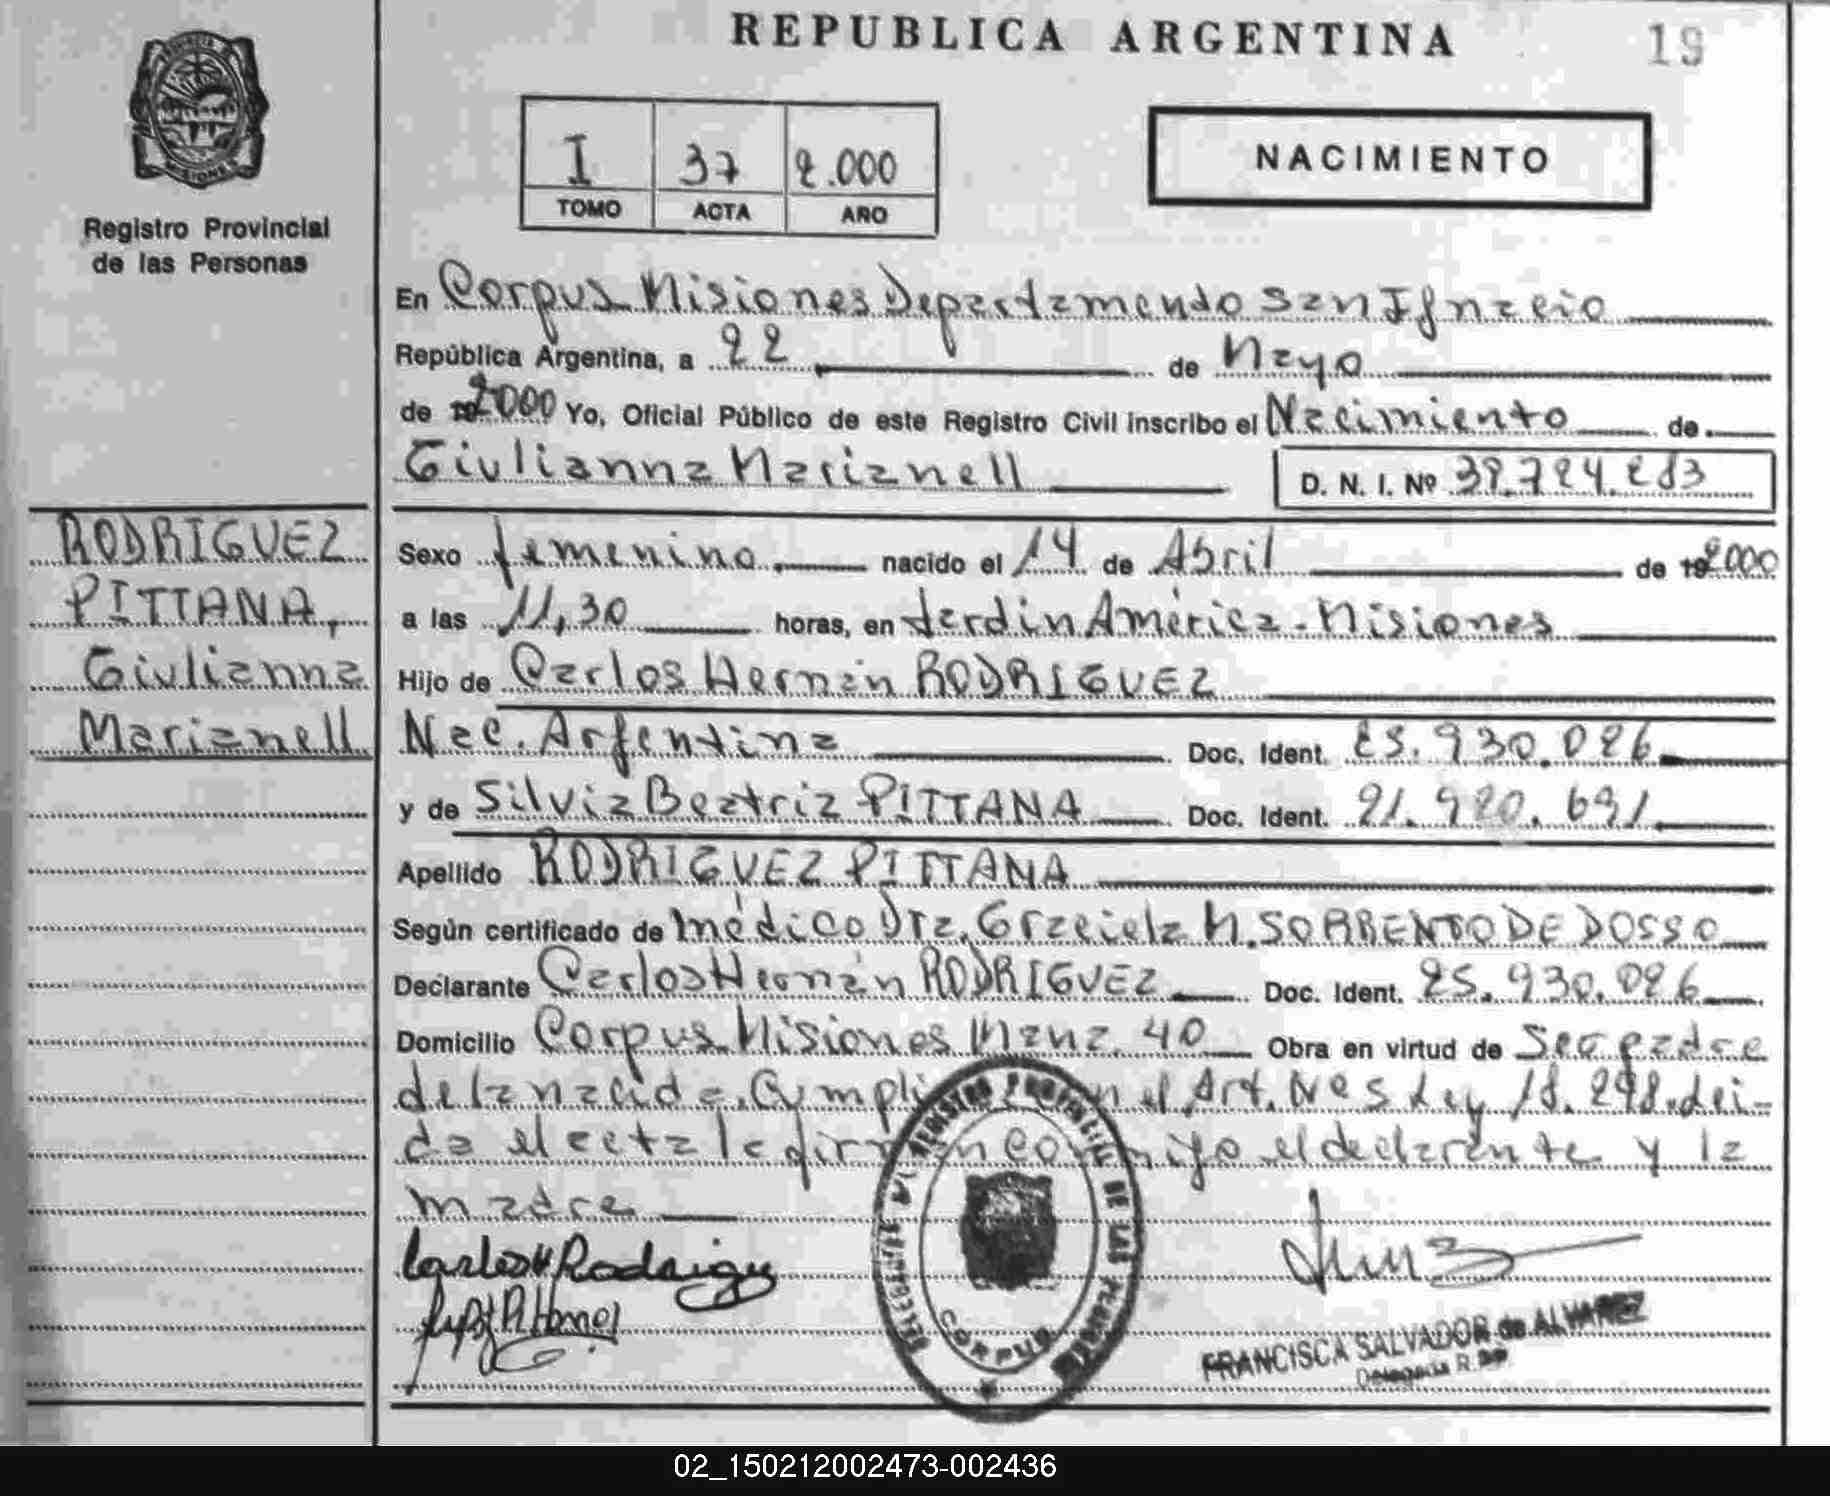 REPUBLICA ARGENTINA
19
Registro Provincial
de las Personas
I 37 2.000
TOMO ACTA AÑO
NACIMIENTO
En Corpus Misiones Departamento San Ignacio
República Argentina, a 22 de Mayo
de 2000 Yo, Oficial Público de este Registro Civil inscribo el Nacimiento de
Giulianna Marianell D. N. I. Nº
RODRIGUEZ
PITTANA,
Giulianna
Marianell
Sexo femenino nacido el 14 de Abril de 2000
a las 11,30 horas, en Jardin América - Misiones
Hijo de Carlos Hernán RODRIGUEZ
Nac. Argentina Doc. Ident. 25.930.026
y de Silvia Beatriz PITTANA Doc. Ident. 21.920.691
Apellido RODRIGUEZ PITTANA
Según certificado de médico Dra. Graciela M. SORRENTO DE DOSSO
Declarante Carlos Hernán RODRIGUEZ Doc. Ident. 25.930.026
Domicilio Corpus Misiones Manz. 40 Obra en virtud de Ser padre
de la nacida. en el Art. Ley 18.248. Lei-
da el acta la conmigo el declarante y la
madre
Carlos H Rodrigu
REGISTRO PROVINCIAL DE LAS PERSONAS
CORPUS
FRANCISCA SALVADOR de ALVAREZ
Delegada R.
02_150212002473-002436